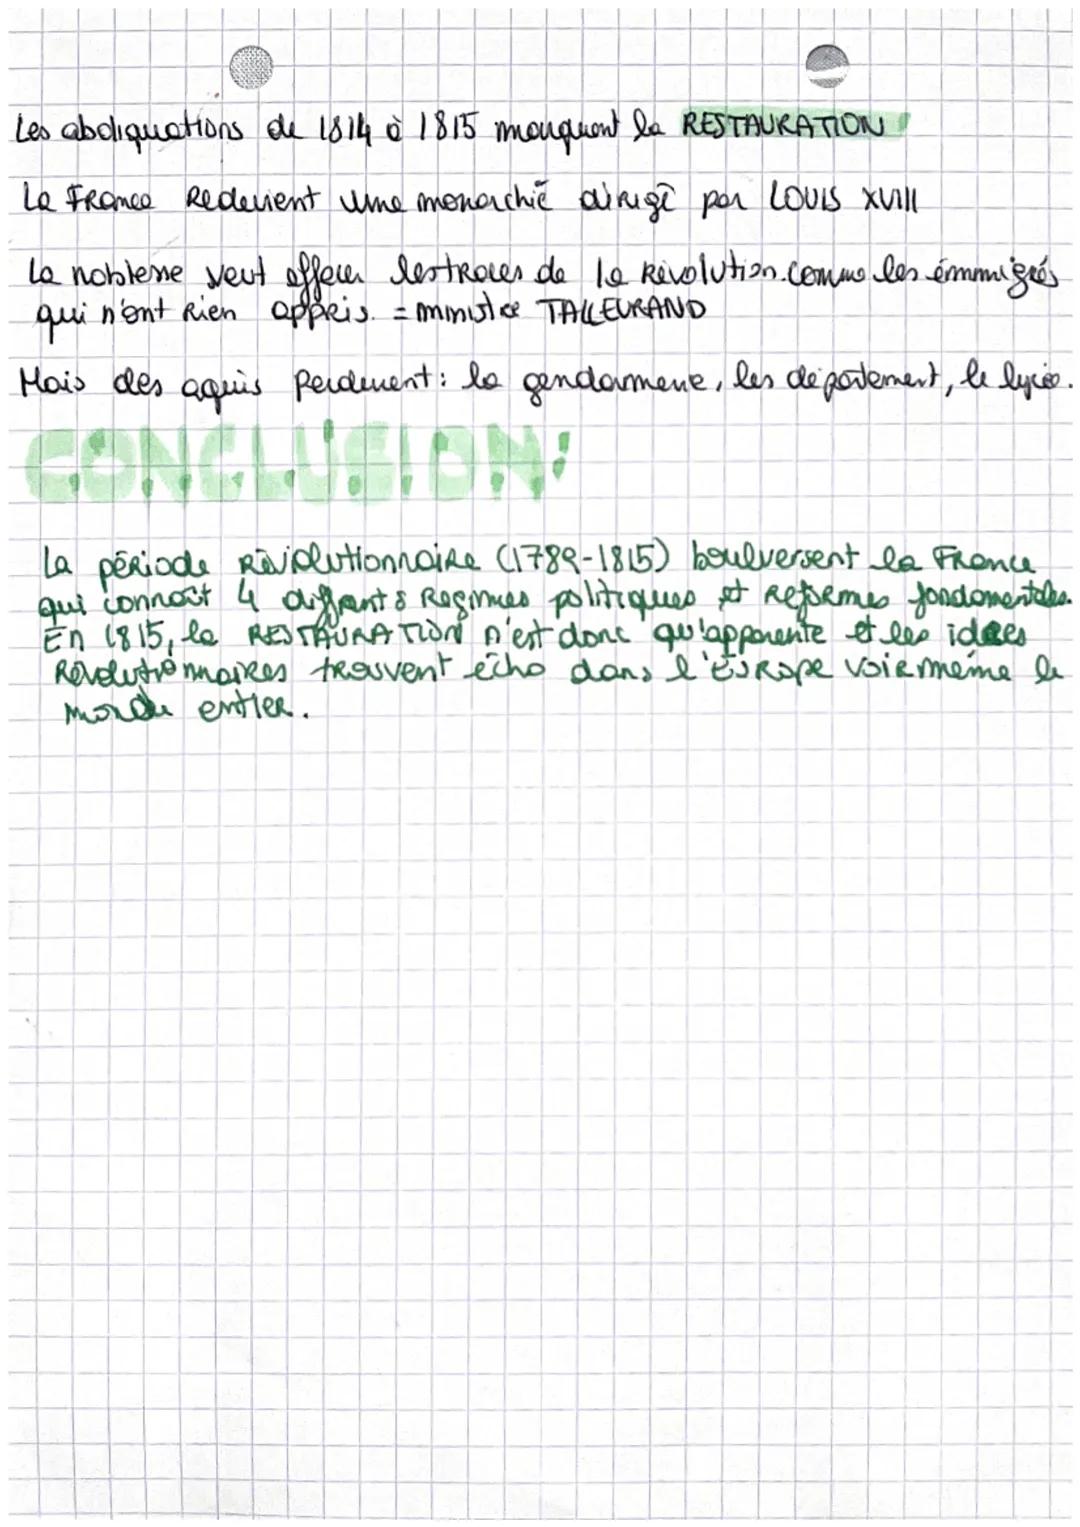 Les abdiquations de 1814 à 1815 marquent la RESTAURATION
La France Redevient une monarchie dirigé par LOUIS XVIII
La noblesse veut effacer les traces de la Révolution. Comme les émmigrés
qui n'ont Rien appris. = ministre TALLEYRAND
Mais des aquis perdurent : la gendarmerie, les département, le lycée.
CONCLUSION:
La période Révolutionnaire (1789-1815) boulversent la France
qui connaît 4 différents Regimes politiques et Reformes fondamentales.
En 1815, la RESTAURATION n'est donc qu'apparente et les idées
Révolutionnaires trouvent écho dans l'Europe voir même le
monde entier.